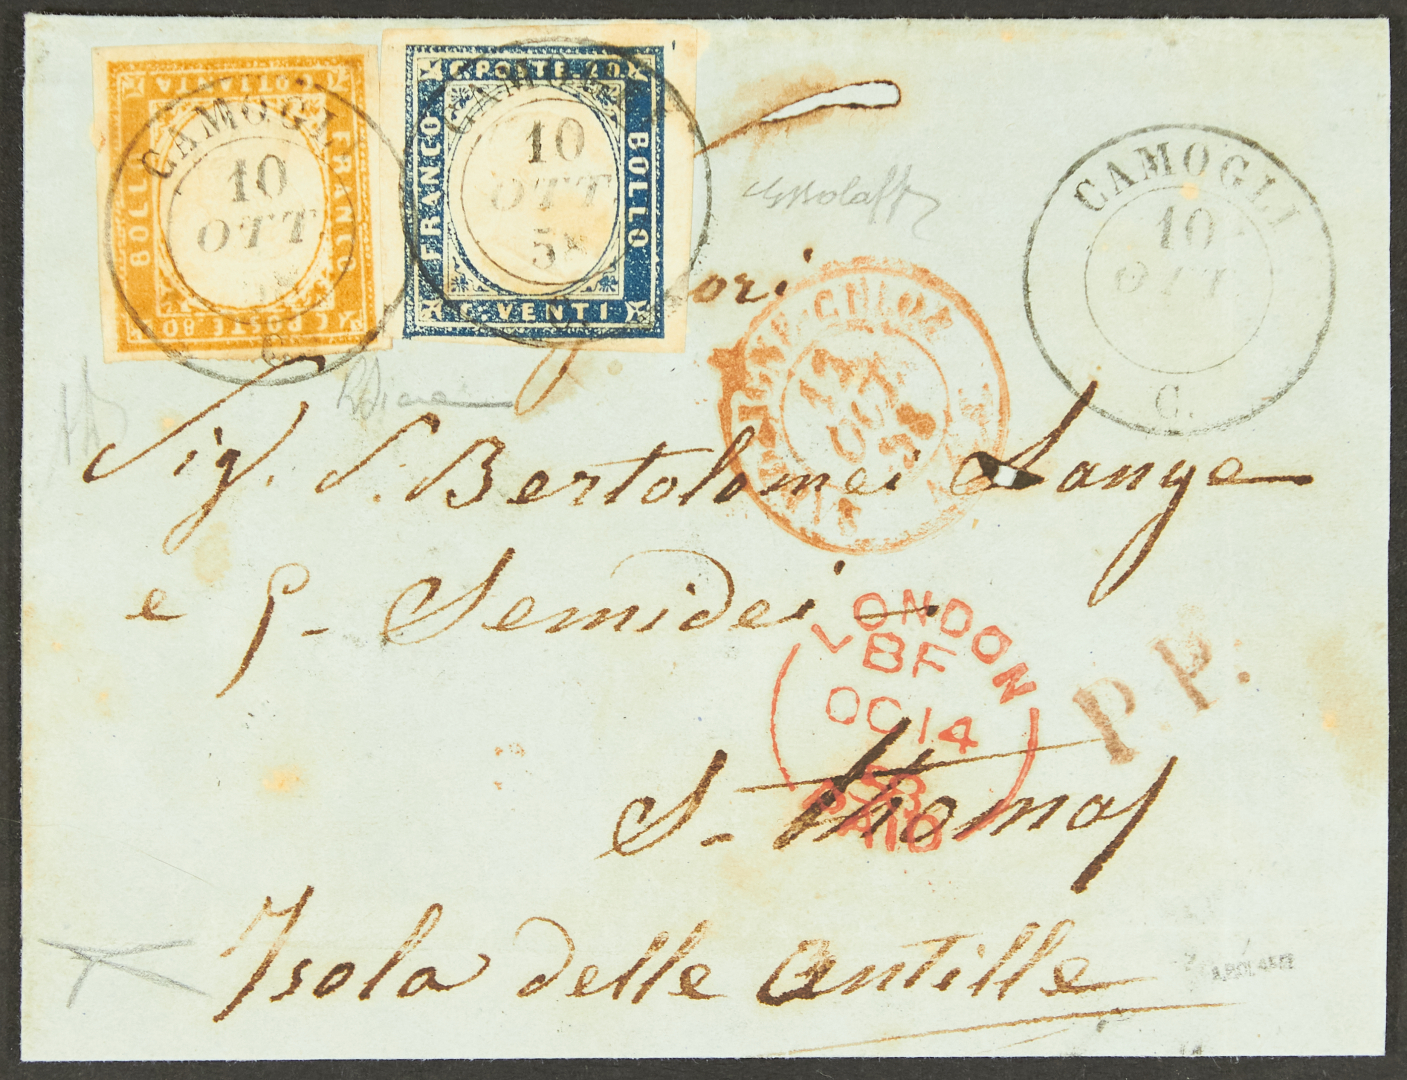 C. POSTE. 80
BOLLO
FRANCO
OTTANTA
C. POSTE. 20
FRANCO
BOLLO
C. VENTI
CAMOGLI
10
OTT
C.
CAMOGLI
10
OTT
58
CAMOGLI
10
OTT
C.
ori
Sig. S. Bertolomei Lange
e P. Semidei
LONDON
BF
OC 14
58
PAID
P.P.
S. Thomas
Isola delle Antille